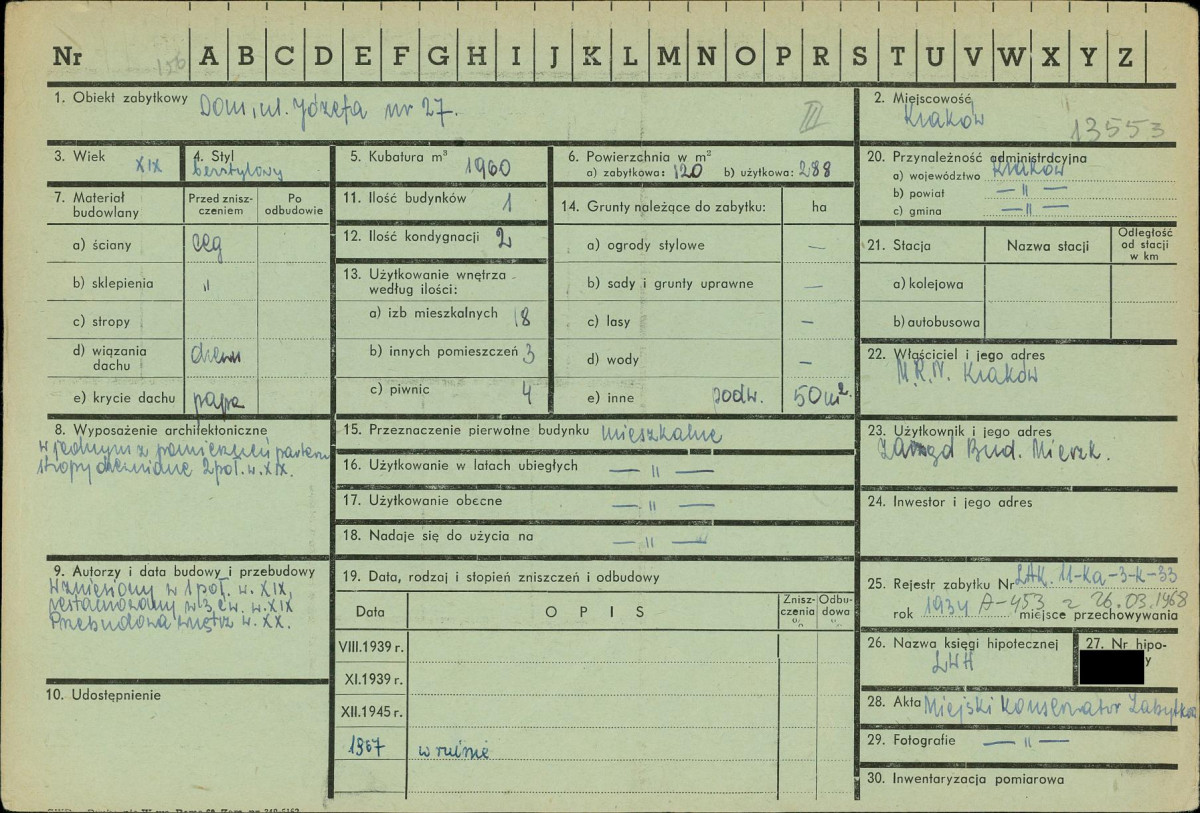 Nr 156 A B C D E F G H I J K L M N O P R S T U V W X Y Z
1. Obiekt zabytkowy Dom, ul. Józefa nr 27. III
2. Miejscowość
Kraków 13553
3. Wiek XIX
4. Styl
bezstylowy
5. Kubatura m³ 1960
6. Powierzchnia w m²
a) zabytkowa: 120 b) użytkowa: 288
20. Przynależność administrdcyjna
a) województwo Kraków
b) powiat — " —
c) gmina — " —
7. Materiał budowlany
Przed znisz-
czeniem
Po
odbudowie
a) ściany ceg
b) sklepienia "
c) stropy
d) wiązania
dachu drewn
e) krycie dachu papa
11. Ilość budynków 1
12. Ilość kondygnacji 2
13. Użytkowanie wnętrza
według ilości:
a) izb mieszkalnych 18
b) innych pomieszczeń 3
c) piwnic 4
14. Grunty należące do zabytku: ha
a) ogrody stylowe —
b) sady i grunty uprawne —
c) lasy —
d) wody —
e) inne podw. 50m².
21. Stacja Nazwa stacji
Odległość
od stacji
w km
a) kolejowa
b) autobusowa
22. Właściciel i jego adres
M.R.N. Kraków
8. Wyposażenie architektoniczne
w jednym z pomieszczeń parteru
stropy drewniane 2 poł. w. XIX.
15. Przeznaczenie pierwotne budynku mieszkalne
16. Użytkowanie w latach ubiegłych — " —
17. Użytkowanie obecne — " —
18. Nadaje się do użycia na — " —
23. Użytkownik i jego adres
Zarząd Bud. Mieszk.
24. Inwestor i jego adres
9. Autorzy i data budowy i przebudowy
Wzniesiony w 1 poł. w. XIX,
restaurowany w 3 ćw. w. XIX
Przebudowa wnętrz w. XX.
10. Udostępnienie
19. Data, rodzaj i stopień zniszczeń i odbudowy
Data OPIS
Znisz-
czenia
%
Odbu-
dowa
%
VIII.1939 r.
XI.1939 r.
XII.1945 r.
1967 w ruinie
25. Rejestr zabytku Nr ŁAK. 11-Ka-3-K-33
rok 1934 A-453 z 26.03.1968 miejsce przechowywania
26. Nazwa księgi hipotecznej
LWH
27. Nr hipo-
y
28. Akta Miejski Konserwator Zabytków
29. Fotografie — " —
30. Inwentaryzacja pomiarowa